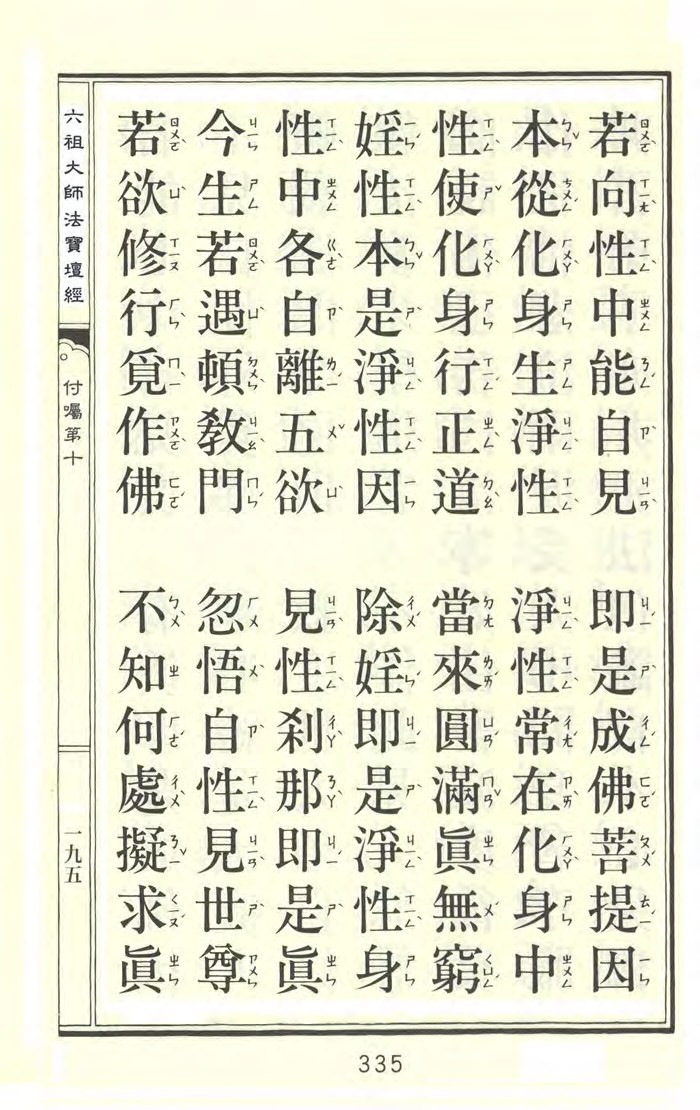 若向性中能自見　即是成佛菩提因
本從化身生淨性　淨性常在化身中
性使化身行正道　當來圓滿眞無窮
婬性本是淨性因　除婬即是淨性身
性中各自離五欲　見性剎那即是眞
今生若遇頓教門　忽悟自性見世尊
若欲修行覓作佛　不知何處擬求眞
六祖大師法寶壇經
付囑第十
一九五
335